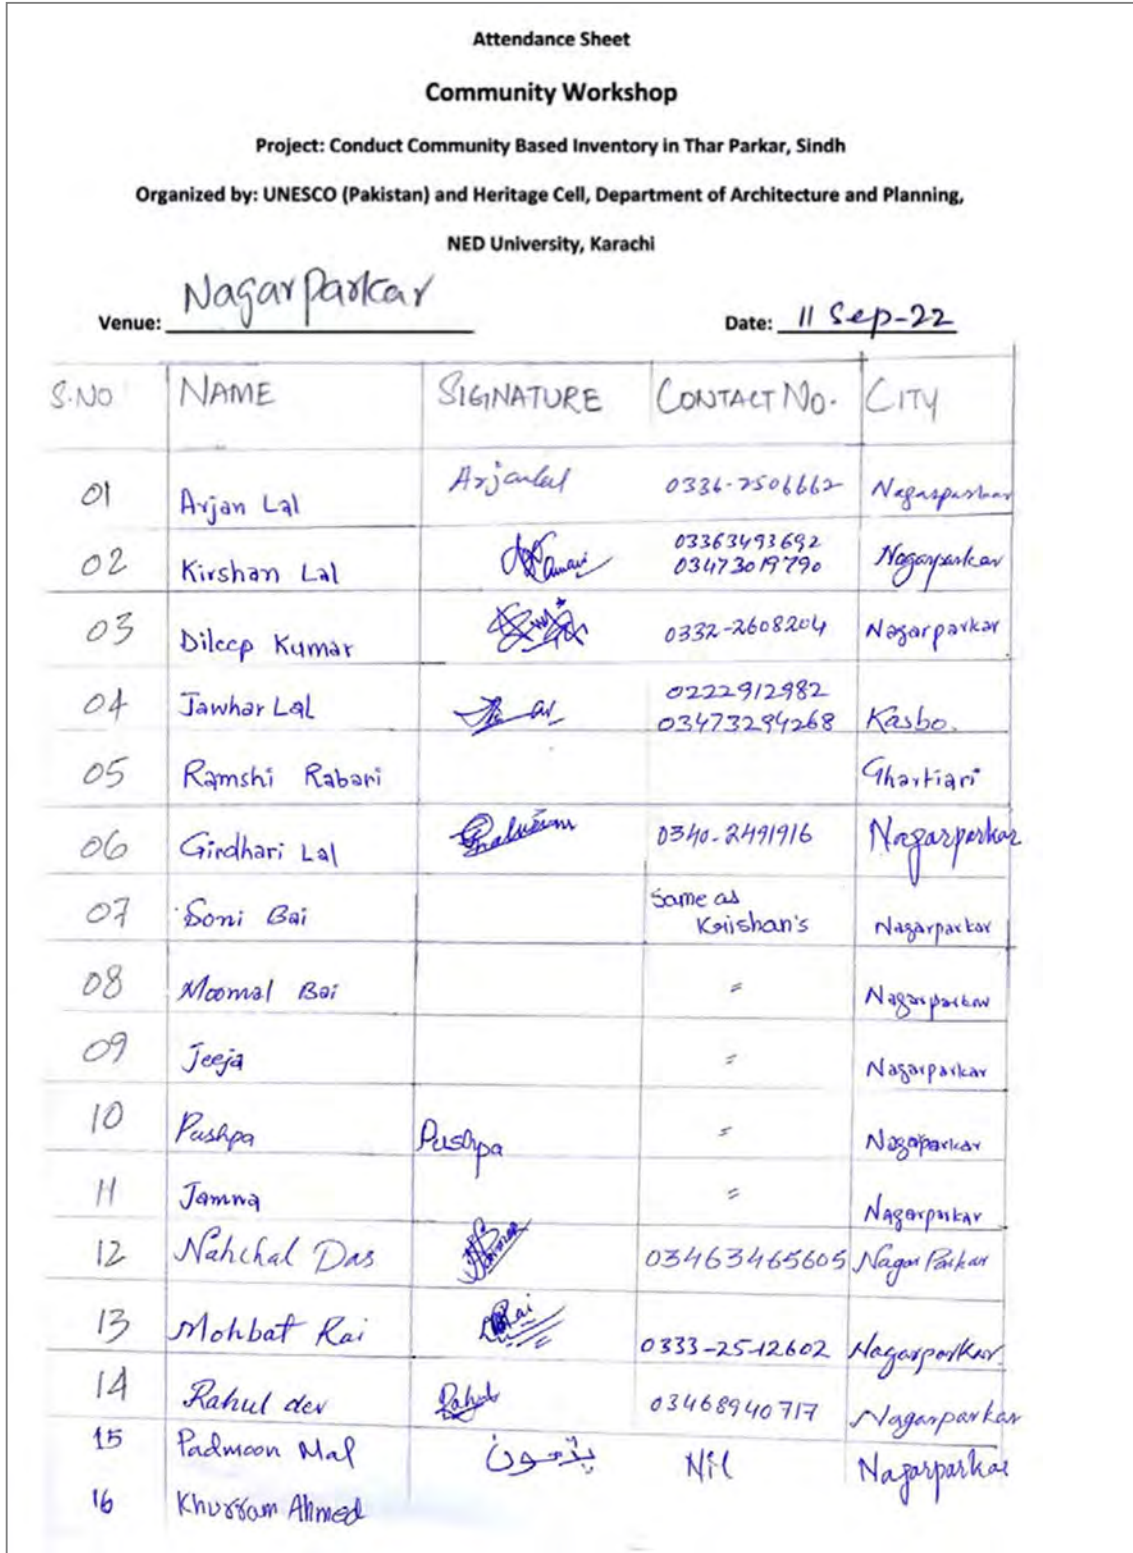 Attendance Sheet
Community Workshop
Project: Conduct Community Based Inventory in Thar Parkar, Sindh
Organized by: UNESCO (Pakistan) and Heritage Cell, Department of Architecture and Planning,
NED University, Karachi
Venue: Nagar Parkar Date: 11 Sep-22
S.NO NAME SIGINATURE CONTACT No. CITY
01 Arjan Lal Arjanlal 0336-2506662 Nagarparkar
02 Kirshan Lal 03363493692 Nagarparkar
03473019790
03 Dileep Kumar 0332-2608204 Nagarparkar
04 Jawhar Lal 0222912982
03473294268 Kasbo.
05 Ramshi Rabari Ghartiari
06 Girdhari Lal 0340-2491916 Nagarparkar
07 Soni Bai Same as
Krishan's Nagarparkar
08 Moomal Bai " Nagarparkar
09 Jeeja " Nagarparkar
10 Pushpa Pushpa " Nagarparkar
11 Jamna " Nagarparkar
12 Nahchal Das 03463465605 Nagar Parkar
13 Mohbat Rai 0333-2542602 Nagarparkar.
14 Rahul dev Rahul 03468940717 Nagarparkar
15 Padmoon Mal پدمون Nil Nagarparkar
16 Khurram Ahmed